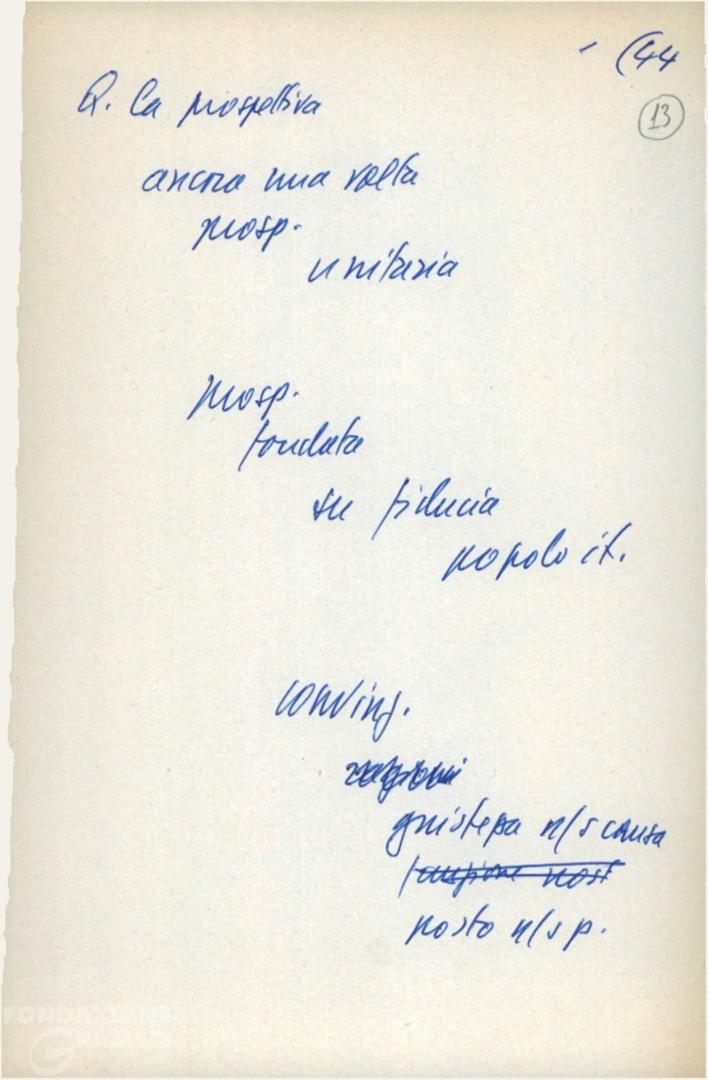 (44
13
Q. La prospettiva
ancora una volta
prosp.
unitaria
prosp.
fondata
su fiducia
popolo it.
conving.
ragioni
giustezza n/s causa
funzione nost
posto n/s p.
FONDAZIONE